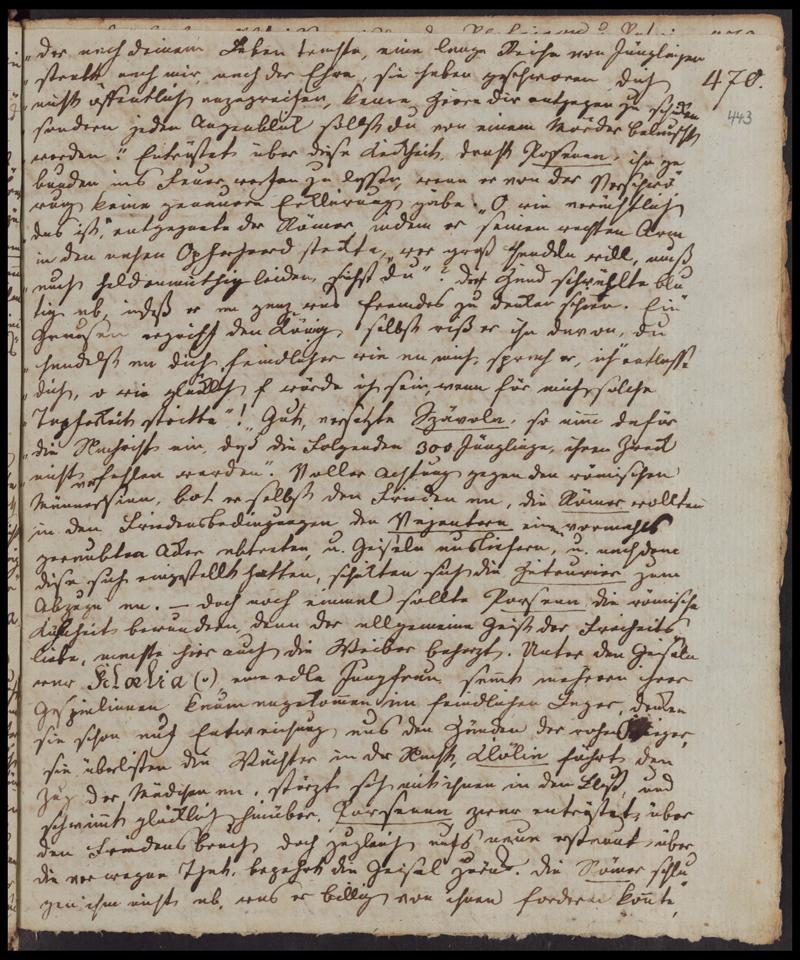 „der nach deinem Leben trachte, eine lange Reihe von Jünglingen
„strebt nach mir, nach der Ehre, sie haben geschworen dich 470.
„nicht öffentlich anzugreifen, keine Heere dir entgegen zu schicken 443
sondern jeden Augenblick sollst du von einem Mörder belauscht
werden“. Entrüstet über diese Keckheit droht Porsenna, ihn ge
bunden ins Feuer werfen zu lassen, wenn er von der Verschwö
rung keine genauere Erklärung gäbe. „O wie verächtlich
das ist“, entgegnete der Römer, indem er seinen rechten Arm
in den nahen Opferherd steckte, „wer groß handeln will, muß
„auch heldenmüthig leiden, siehst du“? die Hand schwehlte blu
tig ab, indeß er an ganz was fremdes zu denken schien. Ein
Grausen ergriff den König, selbst riß er ihn davon, „du
„handelst an dich feindlicher wie an mich, sprach er, ich entlasse
„dich, o wie glücklich würde ich sein, wenn für mich solche
„Tapferkeit stritte“! „Gut, versetzte Szävola, so nimm dafür
„die Nachricht ein, daß die Folgenden 300 Jünglinge, ihren Zweck
nicht verfehlen werden“. Voller Achtung gegen den römischen
Männersinn, bot er selbst den Frieden an, die Römer wollten
in den Friedensbedingungen den Vejentern eine vormahls
geraubten Aker abtreten, u. Geiseln ausliefern, u. nachdem
diese sich eingestellt hatten, schickten sich die Hetrurier zum
Abzuge an. — Doch noch einmal sollte Porsena die römische
Kühnheit bewundern, denn der allgemeine Geist der Freiheits
liebe, machte hier auch die Weiber beherzt. Unter den Geiseln
war Klœlia (υ) eine edle Jungfrau samt mehreren ihrer
Gespielinnen kaum angekommen im feindlichen Lager, denken
sie schon auf Entweichung aus den Händen der rohen Krieger,
sie überlisten die Wächter in der Nacht, Klölia führt den
Zug der Mädchen an, stürzt sich mit ihnen in den Fluß, und
schwimmt glücklich hinüber. Porsenna zwar entrüstet über
den Friedensbruch doch zugleich aufs neue erstaunt über
die verwegene That, begehrt die Geisel zurück. Die Römer schlu
gen ihm nicht ab, was er billig von ihnen fordern konte,